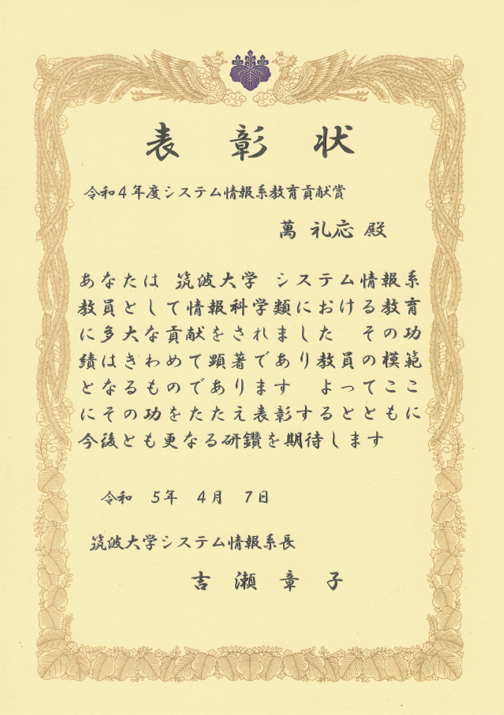 表彰状
令和4年度システム情報系教育貢献賞
萬 礼応 殿
あなたは 筑波大学 システム情報系
教員として情報科学類における教育
に多大な貢献をされました その功
績はきわめて顕著であり教員の模範
となるものであります よってここ
にその功をたたえ表彰するとともに
今後とも更なる研鑽を期待します
令和 5年 4月 7日
筑波大学システム情報系長
吉瀬章子